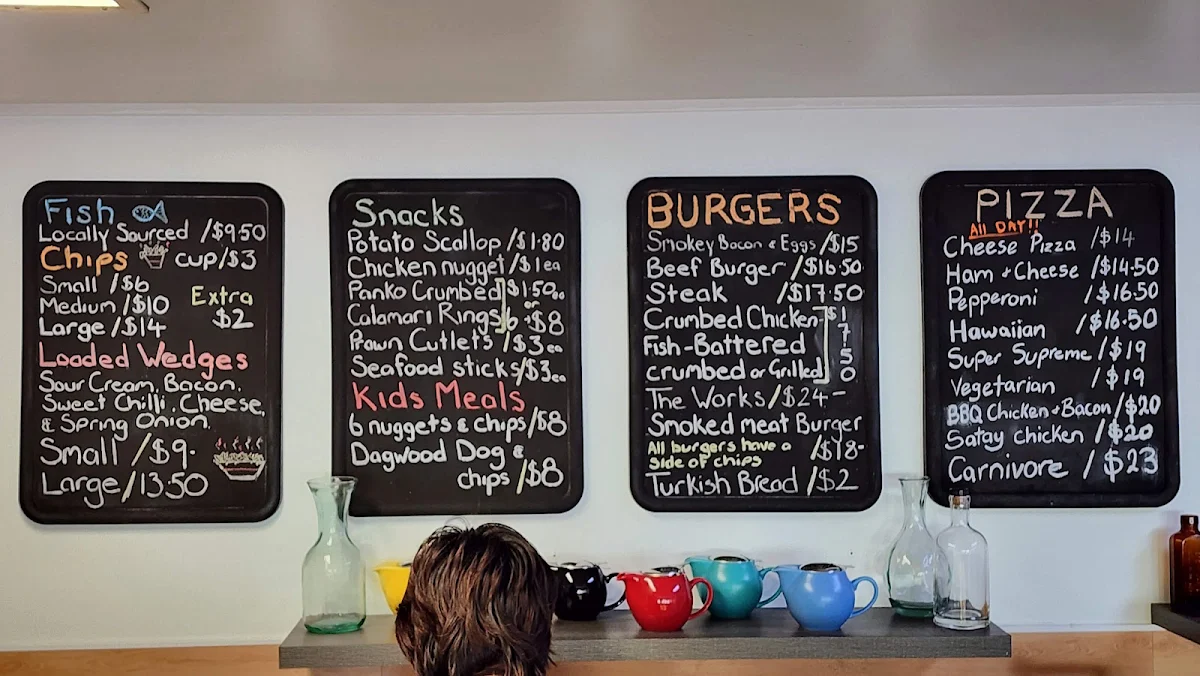 Fish
Locally Sourced /$9.50
Chips cup/$3
Small /$6
Medium /$10
Large /$14
Extra
$2
Loaded Wedges
Sour Cream, Bacon,
Sweet Chilli, Cheese,
& Spring Onion.
Small /$9.
Large/13.50
Snacks
Potato Scallop /$1.80
Chicken nugget /$1ea
Panko Crumbed $1.50ea
or
Calamari Rings 6-$8
Prawn Cutlets /$3ea
Seafood sticks/$3ea
Kids Meals
6 nuggets & chips/$8
Dagwood Dog &
chips /$8
BURGERS
Smokey Bacon & Eggs /$15
Beef Burger /$16.50
Steak /$17.50
Crumbed Chicken
Fish-Battered
crumbed or Grilled
$17.50
The Works/$24-
Smoked meat Burger
/$18-
All burgers have a
side of chips
Turkish Bread /$2
PIZZA
ALL DAY!!
Cheese Pizza /$14
Ham & Cheese /$14.50
Pepperoni /$16.50
Hawaiian /$16.50
Super Supreme /$19
Vegetarian /$19
BBQ Chicken & Bacon /$20
Satay chicken /$20
Carnivore /$23